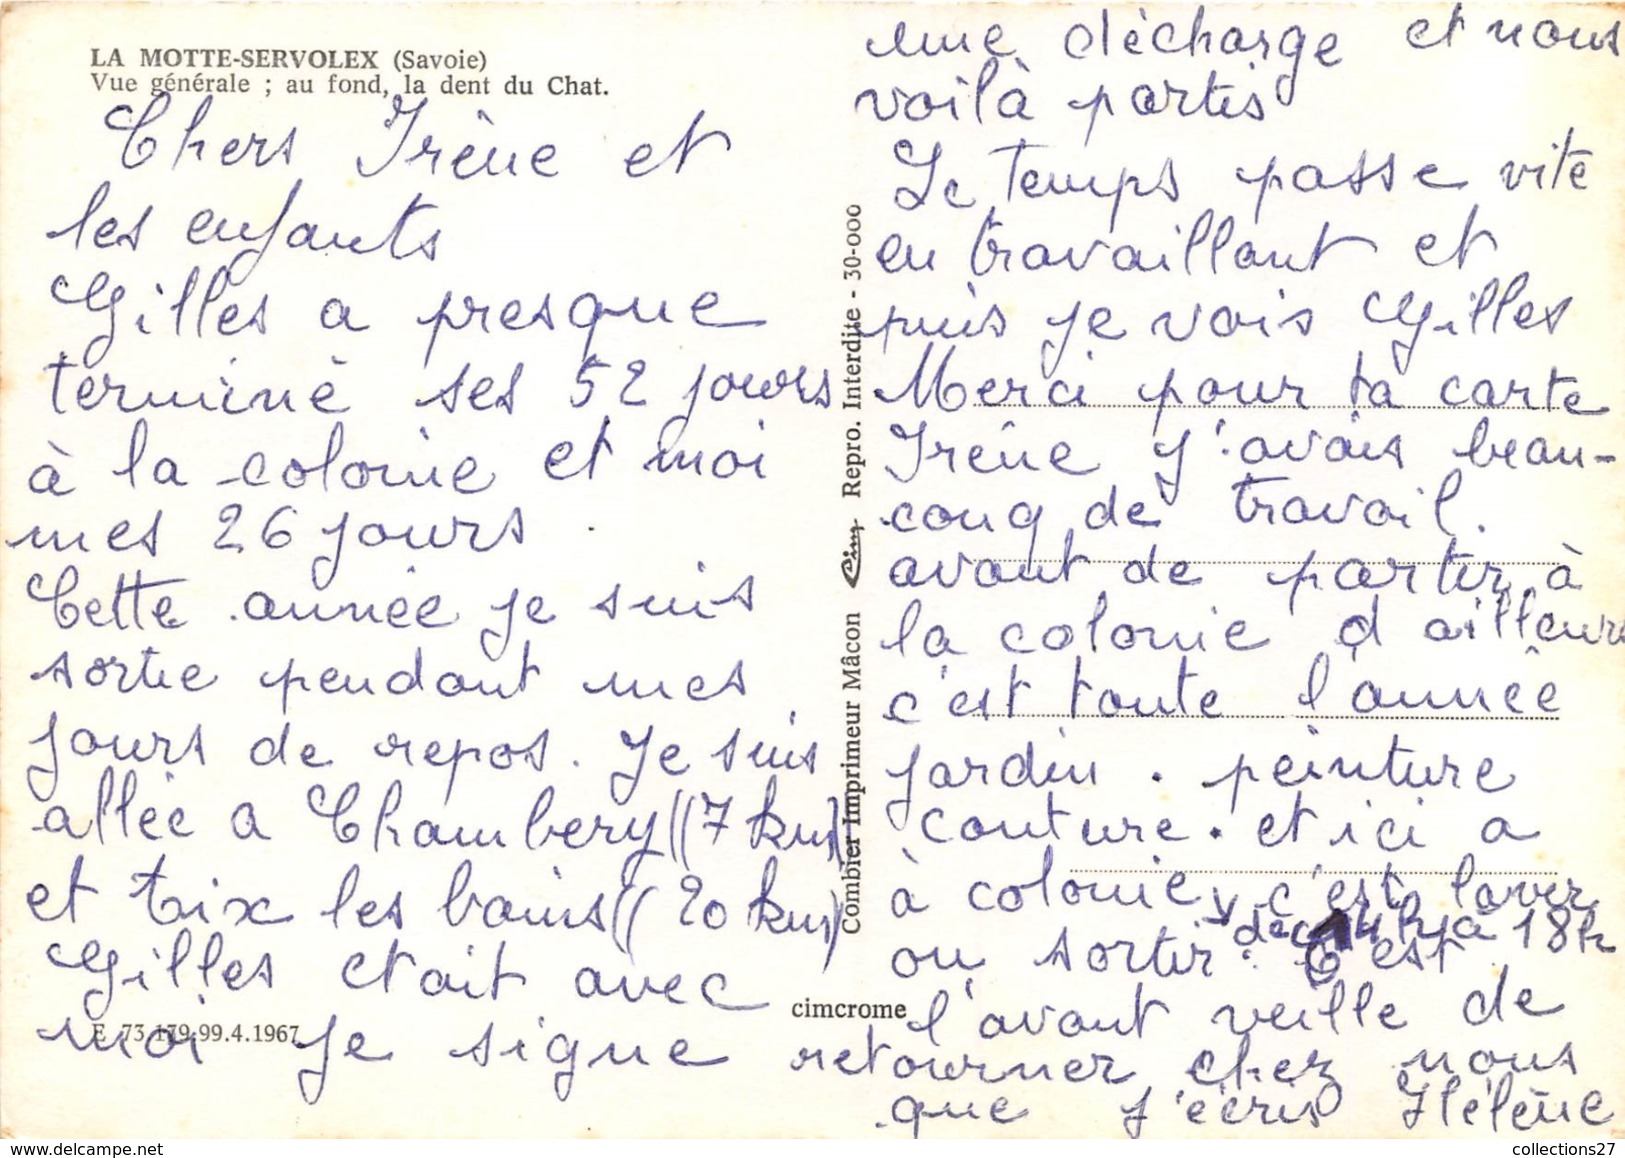 LA MOTTE-SERVOLEX (Savoie)
Vue générale ; au fond, la dent du Chat.
Chers Irène et
les enfants
Gilles a presque
terminé ses 52 jours
à la colonie et moi
mes 26 jours.
Cette année je suis
sortie pendant mes
jours de repos. Je suis
allée a Chambery (7 kms)
et Aix les bains (20 kms)
Gilles etait avec
moi Je signe
E 73 179.99.4.1967
Combier Imprimeur Mâcon Cim Repro. Interdite - 30-000
cimcrome
une décharge et nous
voilà partis
Le temps passe vite
en travaillant et
puis je vois Gilles
Merci pour ta carte
Irène J'avais beau-
couq de travail.
avant de partir à
la colonie d ailleurs
c'est toute l'année
jardin. peinture
couture. et ici a
à colonie c'est laver
ou sortir de 14h a 18h
C'est
l'avant veille de
retourner chez nous
que j'écris Hélène
collections27